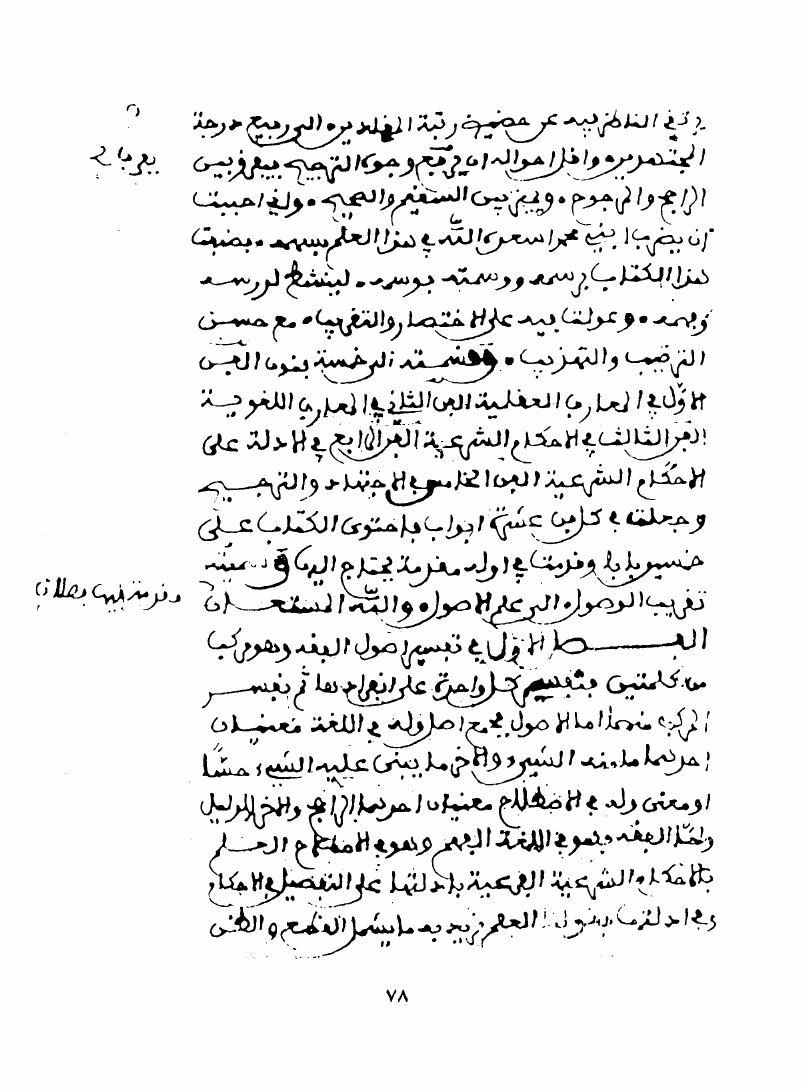 يرتقي الناظر فيه عن حضيض رتبة المقلدين إلى رفيع درجة
المجتهدين وأقل أحواله أن يعرف وجوه الترجيح فيفرق بين
يعرف با
الراجح والمرجوح ويميز بين السقيم والصحيح وإني أحببت
أن يضرب ابني محمد أسعده الله في هذا العلم بسهم فصنفت
هذا الكتاب برسمه ووسمته بوسمه لينشط لدرسه
وفهمه وعولت فيه على الاختصار والتقريب مع حسن
الترتيب والتهذيب وقسمته إلى خمسة فنون الفن
الأول في المعارف العقلية الفن الثاني في المعارف اللغوية
الفن الثالث في الأحكام الشرعية الفن الرابع في الأدلة على
الأحكام الشرعية الفن الخامس في الاجتهاد والترجيح
وجعلت في كل فن عشرة أبواب فاحتوى الكتاب على
خمسين بابا وقدمت في أوله مقدمة يحتاج إليها وسميته
تقريب الوصول إلى علم الأصول والله المستعان
وقدمة فيها فصلان
الفصل الأول في تفسير أصول الفقه وهو مركب
من كلمتين فتفسير كل واحدة على انفرادها ثم نفسر
المركب منهما أما الأصول فجمع أصل وله في اللغة معنيان
أحدهما ما منه الشيء والآخر ما يبنى عليه الشيء حسا
أو معنى وله في الاصطلاح معنيان أحدهما الراجح والآخر الدليل
وأما الفقه فهو في اللغة الفهم وهو في الاصطلاح العلم
بالأحكام الشرعية الفرعية بأدلتها على التفصيل في الأحكام
وفي أدلتها فقولنا العلم نريد به ما يشمل القطع والظن
٧٨